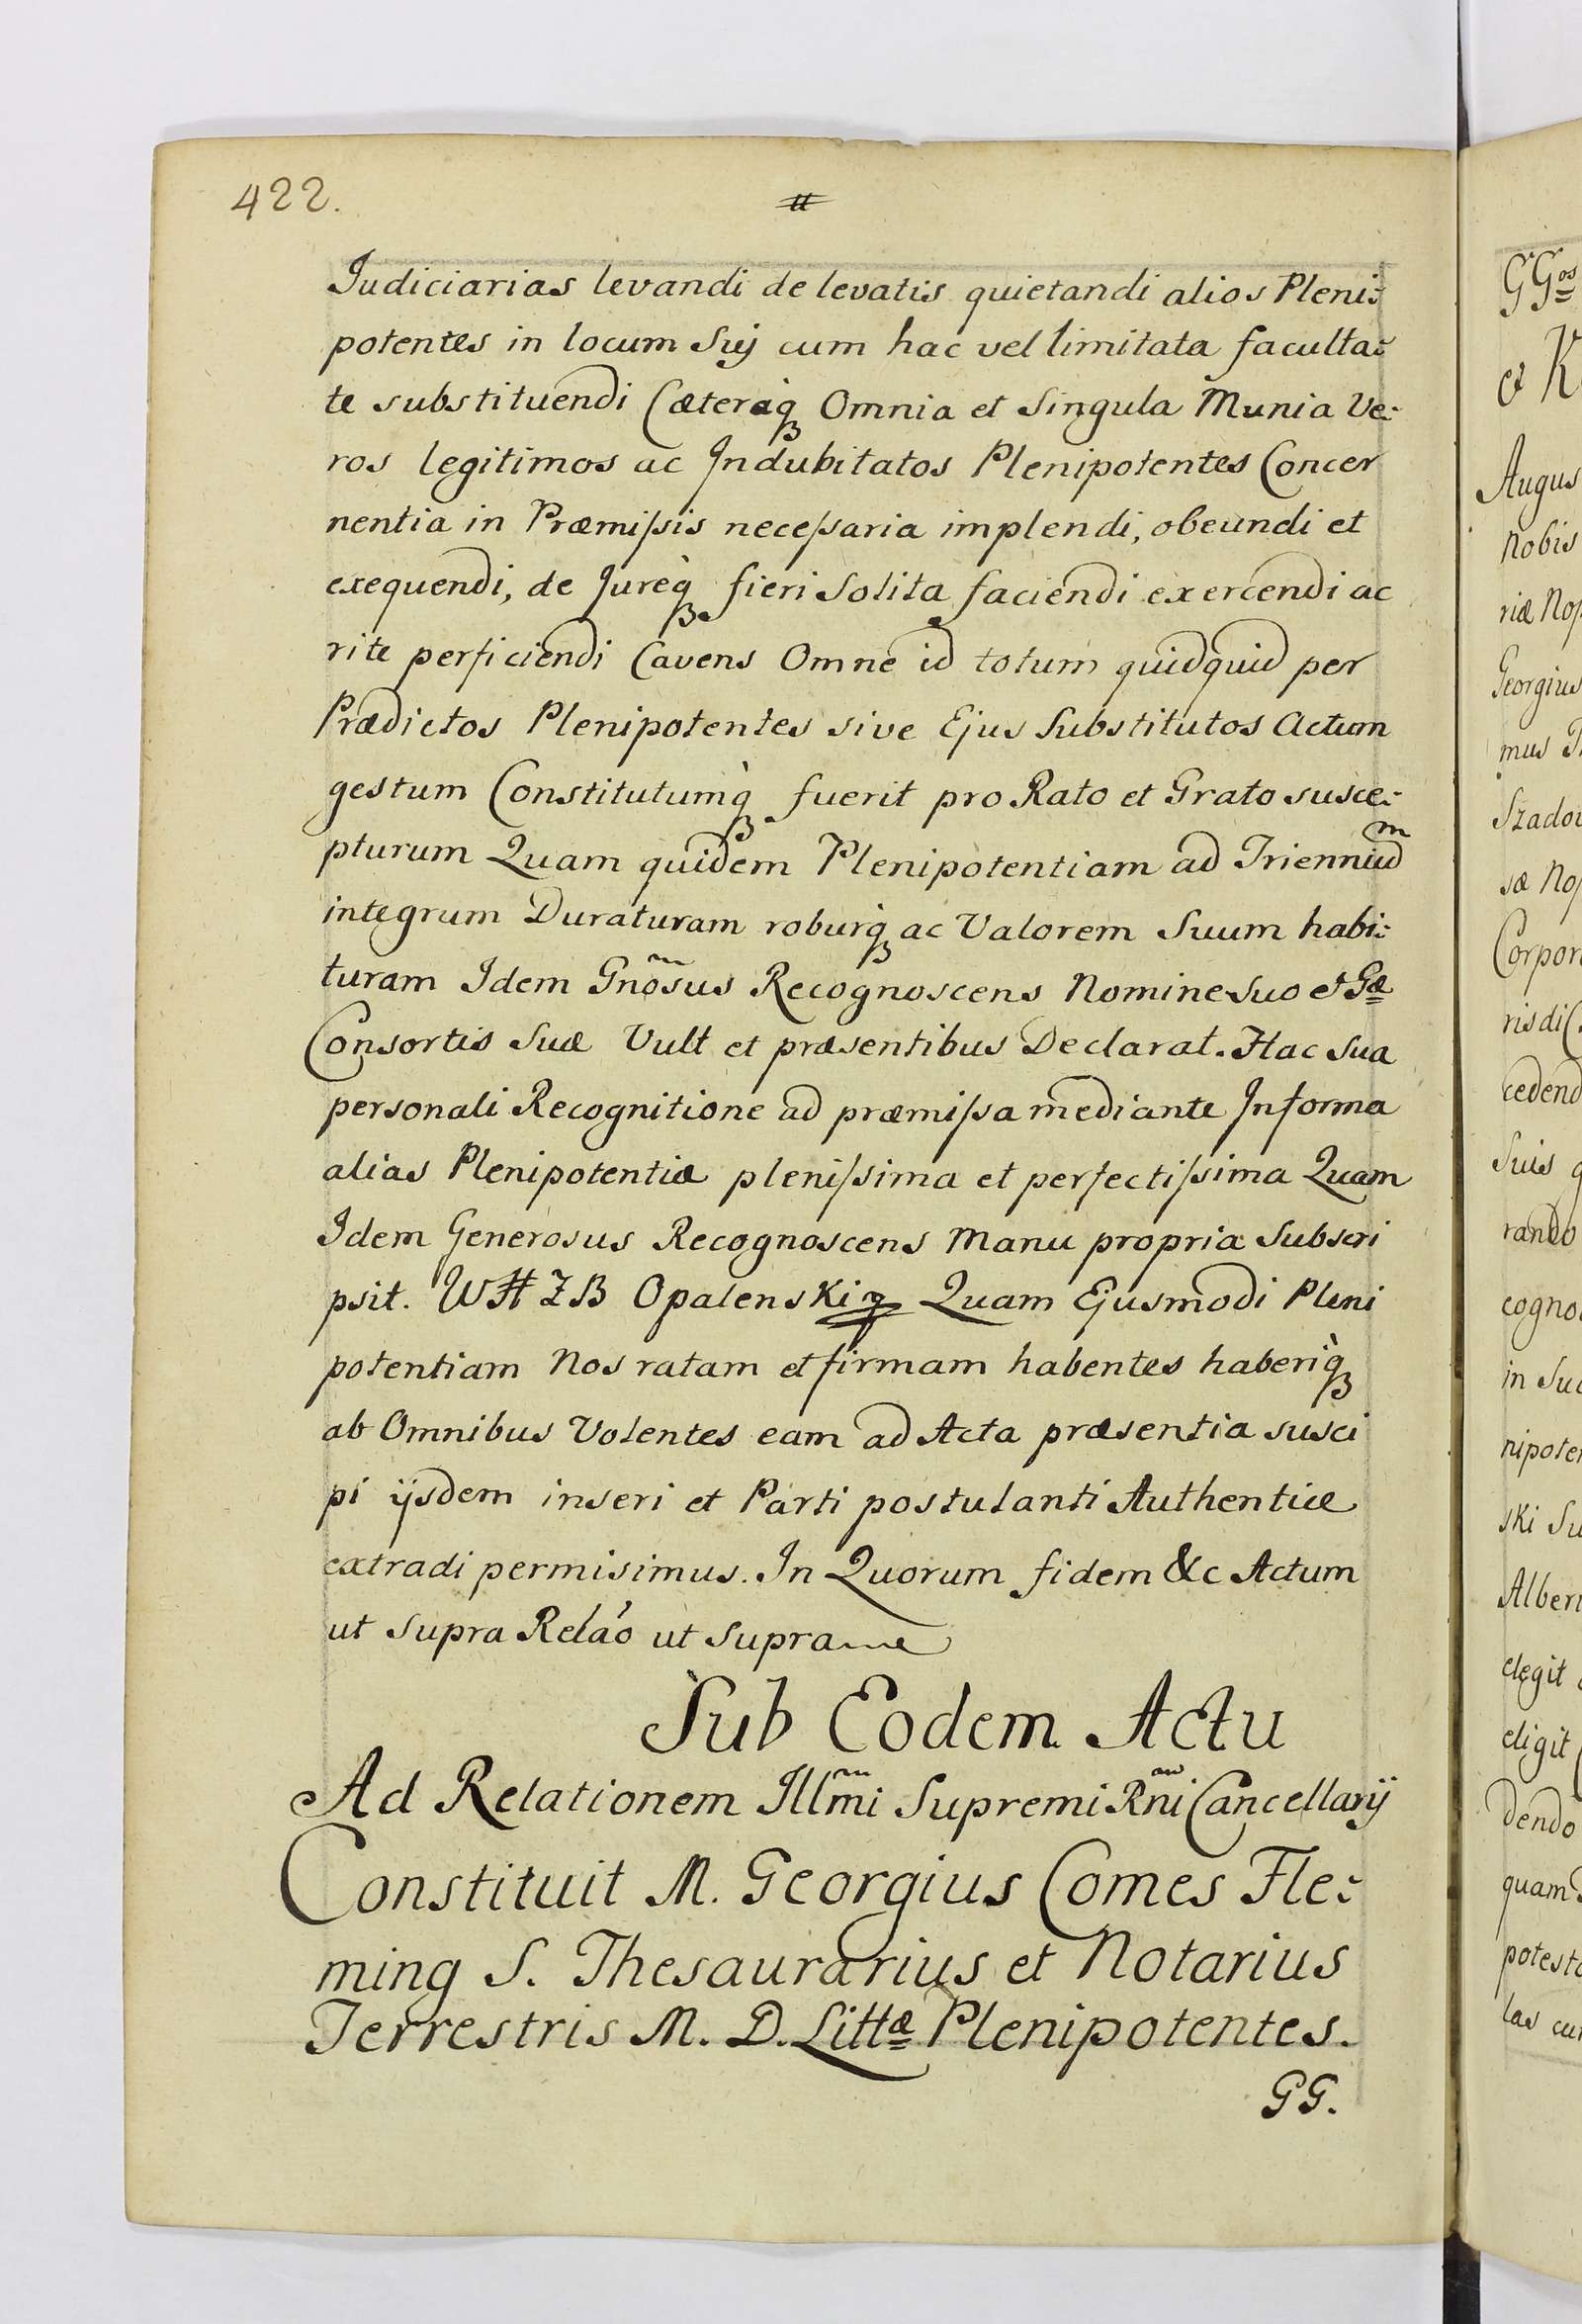 422.
Judiciarias levandi de levatis quietandi alios Pleni:
potentes in locum Suj cum hac vel limitata faculta:
te substituendi Cæteraq̀ꝫ Omnia et Singula Munia Ve:
ros legitimos ac Indubitatos Plenipotentes Concer
nentia in Præmißis neceßaria implendi, obeundi et
exequendi, de Jureq̀ꝫ fieri Solita faciendi exercendi ac
rite perficiendi Cavens Omne id totum quidquid per
Prædictos Plenipotentes sive Ejus Substitutos Actum
gestum Constitutumq̀ꝫ fuerit pro Rato et Grato susce:
pturum Quam quidem Plenipotentiam ad Trienniu͠m
integrum Duraturam roburq̀ꝫ ac Valorem Suum habi:
turam Idem Gno͠sus Recognoscens Nomine Suo et Gæ
Consortis Suæ Vult et præsentibus Declarat. Hac Sua
personali Recognitione ad præmißa mediante In forma
alias Plenipotentiæ plenißima et perfectißima Quam
Idem Generosus Recognoscens Manu propria Subscri
psit. WH Z B Opalenski Quam Ejusmodi Pleni
potentiam Nos ratam et firmam habentes haberiq̀ꝫ
ab Omnibus Volentes eam ad Acta præsentia susci
pi ijsdem inseri et Parti postulanti Authenticæ
extradi permisimus. In Quorum fidem &c Actum
ut supra Relao̓ ut Supra
Sub Eodem Actu
Ad Relationem Illm͠i Supremi Rn͠i Cancellarij
Constituit M. Georgius Comes Fle:
ming S. Thesaurarius et Notarius
Terrestris M. D. Littæ Plenipotentes.
GG.
GGos
et K
Augus
Nobis
riæ Nos
Georgius
mus
Szadov
sæ
Corpor
ris di
cedend
Suis
rando
cogno
in Su
nipoten
ski Su
Alber
elegit
eligit
dendo
quam
potest
las cu